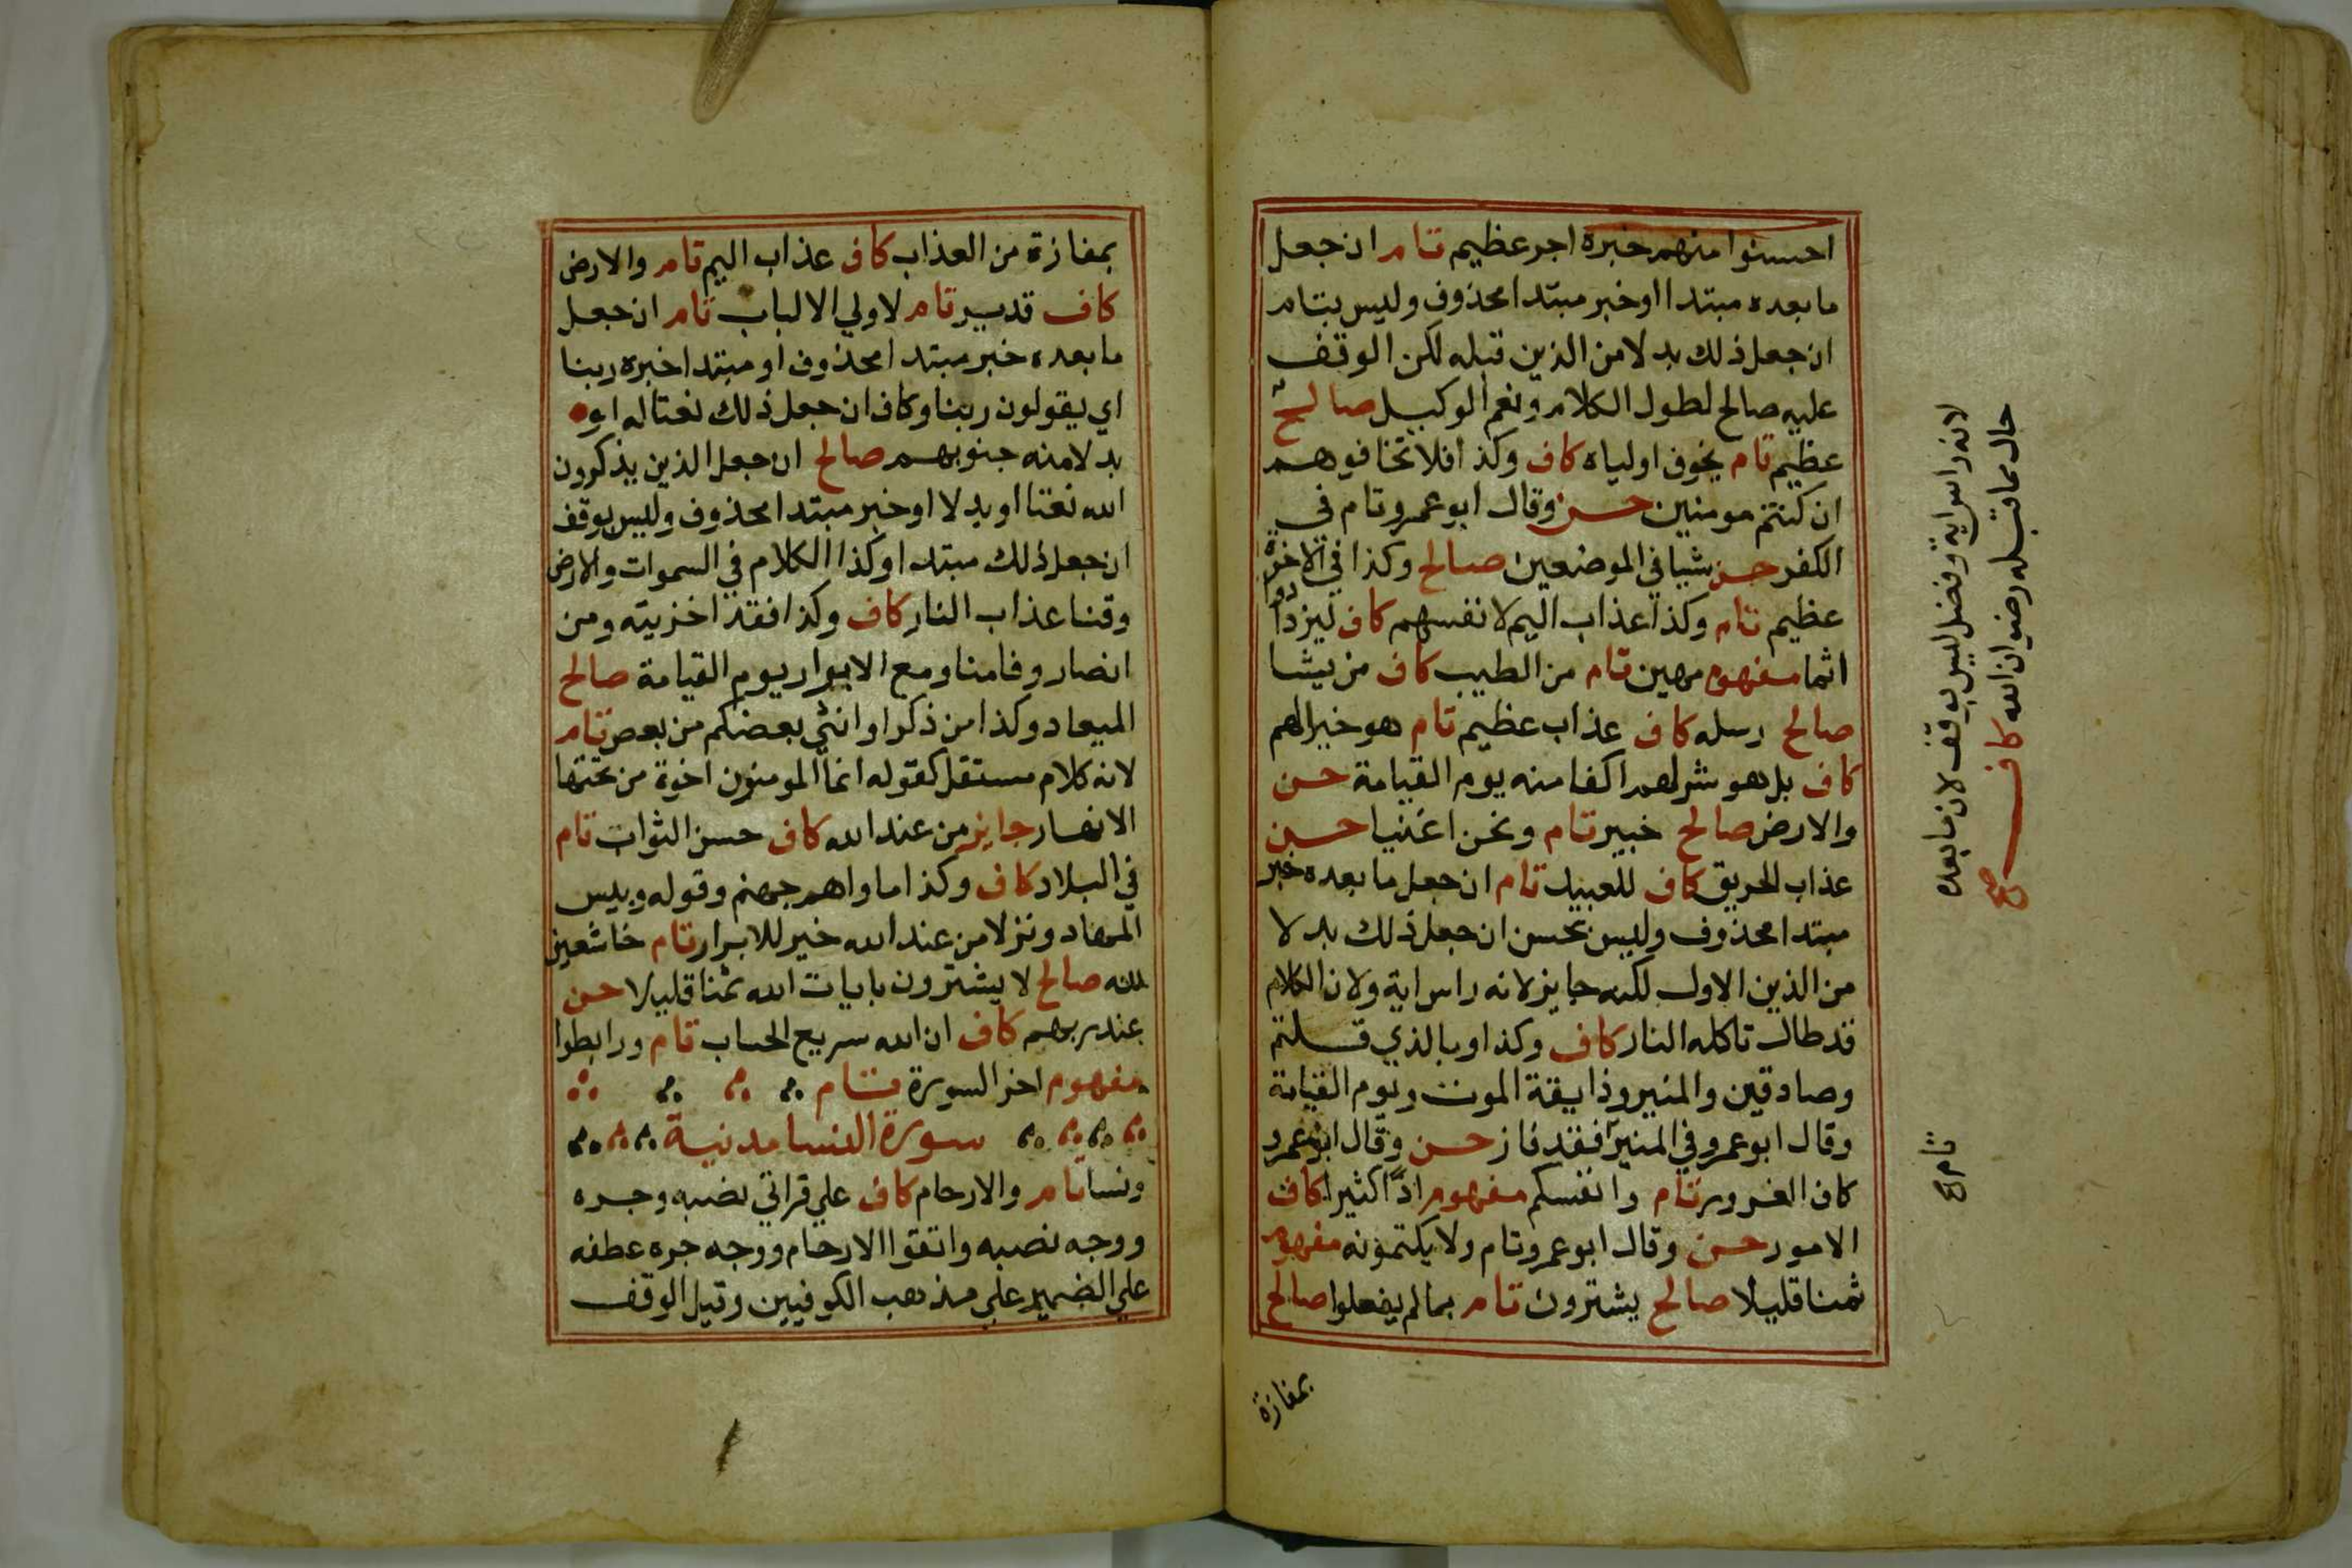 احسنوا منهم خبره اجر عظيم تام ان جعل
ما بعده مبتدا او خبر مبتدا محذوف وليس بتام
ان جعل ذلك بدلا من الذين قبله لكن الوقف
عليه صالح لطول الكلام ونعم الوكيل صالح
عظيم تام يخوف اولياه كاف وكذا فلا تخافوهم
ان كنتم مومنين حسن وقال ابو عمرو تام في
الكفر حسن شيا في الموضعين صالح وكذا في الاخرة
عظيم تام وكذا عذاب اليم لانفسهم كاف ليزدادوا
اثما مفهوم مهين تام من الطيب كاف من يشا
صالح رسله كاف عذاب عظيم تام هو خيرا لهم
كاف بل هو شر لهم اكفا منه يوم القيامة حسن
والارض صالح خبير تام ونحن اغنيا حسن
عذاب الحريق كاف للعبيد تام ان جعل ما بعده خبر
مبتدا محذوف وليس بحسن ان جعل ذلك بدلا
من الذين الاول لكنه جايز لانه راس اية ولان الكلام
قد طال تاكله النار كاف وكذا وبالذي قلتم
وصادقين والمنير وذايقة الموت ويوم القيامة
وقال ابو عمرو في المنير فقد فاز حسن وقال ابو عمرو
كاف الغرور تام وانفسكم مفهوم اذا كثيرا كاف
الامور حسن وقال ابو عمرو تام ولا يكتمونه مفهوم
ثمنا قليلا صالح يشترون تام بما لم يفعلوا صالح
بمفازة
لانه راس اية وفضل ليس بوقف لان ما بعده
حال مما قبله رضوان الله كاف صح
تام
بمفازة من العذاب كاف عذاب اليم تام والارض
كاف قدير تام لاولي الالباب تام ان جعل
ما بعده خبر مبتدا محذوف او مبتدا خبره ربنا
اي يقولون ربنا وكاف ان جعل ذلك نعتا له او
بدلا منه جنوبهم صالح ان جعل الذين يذكرون
الله نعتا او بدلا او خبر مبتدا محذوف وليس بوقف
ان جعل ذلك مبتدا وكذا الكلام في السموات والارض
وقنا عذاب النار كاف وكذا فقد اخزيته ومن
انصار وفامنا ومع الابرار يوم القيامة صالح
الميعاد وكذا من ذكر او انثي بعضكم من بعض تام
لانه كلام مستقل كقوله انما المومنون اخوة من تحتها
الانهار جايز من عند الله كاف حسن الثواب تام
في البلاد كاف وكذا ماواهم جهنم وقوله وبيس
المهاد ونزلا من عند الله خير للابرار تام خاشعين
لله صالح لا يشترون بايات الله ثمنا قليلا حسن
عند ربهم كاف ان الله سريع الحساب تام ورابطوا
مفهوم اخر السورة تام
سورة النسا مدنية
ونسا تام والارحام كاف علي قراتي نصبه وجره
ووجه نصبه واتقوا الارحام ووجه جره عطفه
علي الضمير علي مذهب الكوفيين وقيل الوقف